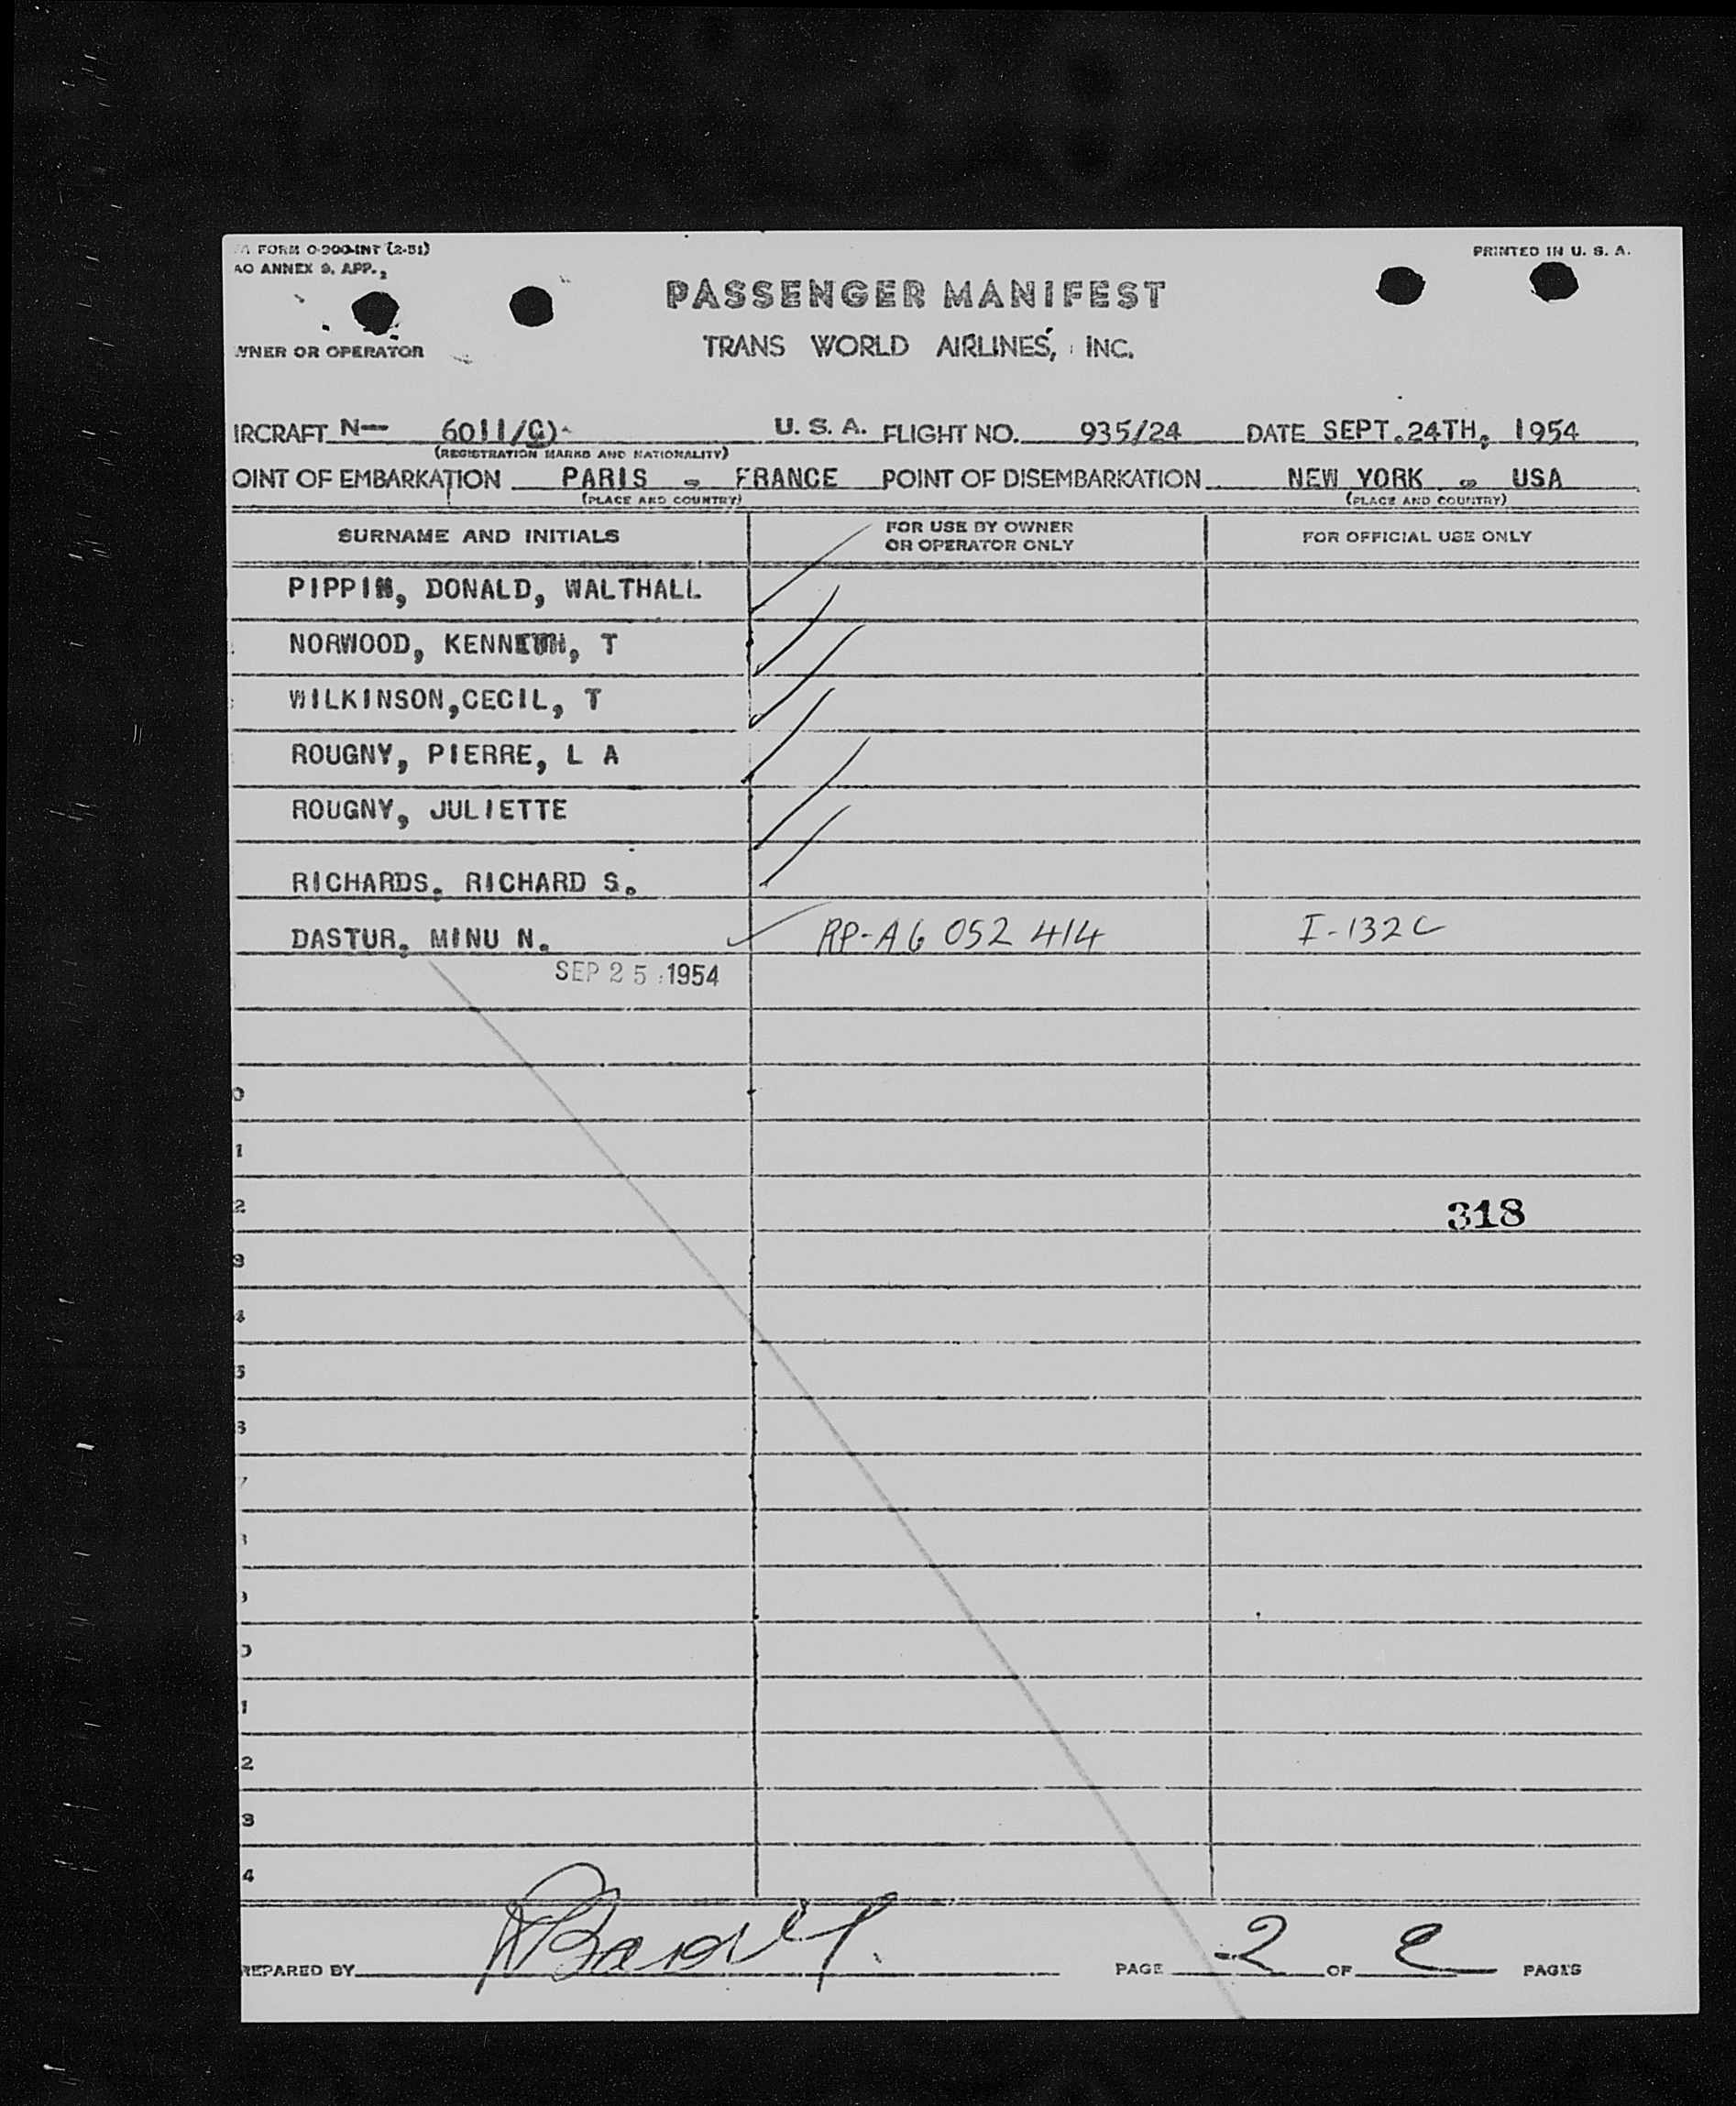 A FORM O-300-INT (2-51)
AO ANNEX 9, APP. 2
PRINTED IN U. S. A.
PASSENGER MANIFEST
WNER OR OPERATOR
TRANS WORLD AIRLINES, INC.
IRCRAFT N— 6011/C) U. S. A. FLIGHT NO. 935/24 DATE SEPT.24TH, 1954
(REGISTRATION MARKS AND NATIONALITY)
OINT OF EMBARKATION PARIS - FRANCE POINT OF DISEMBARKATION NEW YORK - USA
(PLACE AND COUNTRY) (PLACE AND COUNTRY)
SURNAME AND INITIALS FOR USE BY OWNER OR OPERATOR ONLY FOR OFFICIAL USE ONLY
PIPPIN, DONALD, WALTHALL
NORWOOD, KENNETH, T
WILKINSON,CECIL, T
ROUGNY, PIERRE, L A
ROUGNY, JULIETTE
RICHARDS. RICHARD S.
DASTUR. MINU N. RP-A6 052 414 I-132C
SEP 25 1954
0
1
2 318
3
4
5
6
7
8
9
0
1
2
3
4
REPARED BY PAGE 2 OF 2 PAGES